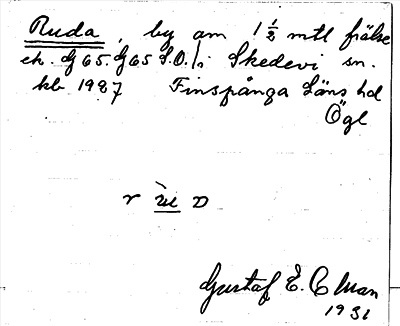 Ruda, by am 1 1/2 mtl frälse
ek. G 65. G 65 S.O. i Skedevi sn.
kb 1927 Finspånga Läns hd
Ögl
r ùu D
Gustaf E. C:man
1931